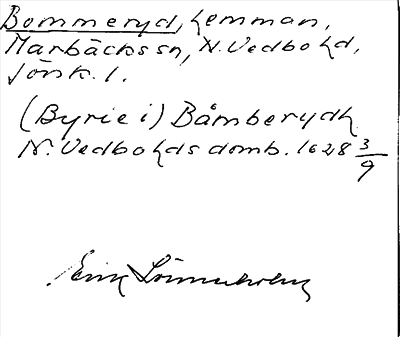 Bommeryd, hemman,
Marbäcks sn, N. Vedbo hd,
Jönk. l.
(Byrie i) Båmberydh
N. Vedbo hds domb. 1628 3/9
Erik